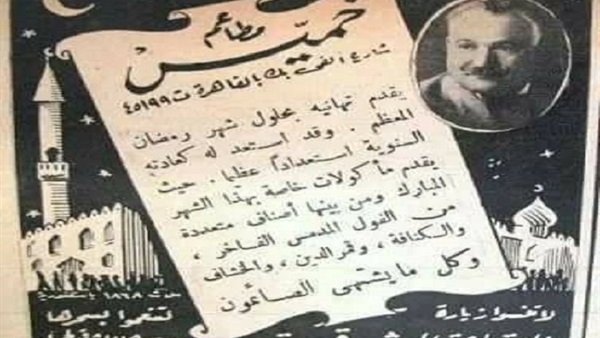 مطاعم
خميس
شارع الفى بك بالقاهرة ت ٤٥١٩٩
يقدم تهانيه بحلول شهر رمضان
المعظم . وقد استعد له كعادته
السنوية استعدادًا عظيما . حيث
يقدم مأكولات خاصة بهذا الشهر
المبارك ومن بينها أصناف متعددة
من الفول المدمس الفاخر ،
والكنافة ، وقمر الدين ، والخشاف
وكل ما يشتهى الصائمون
لا تنسوا زيارة
لتنعموا بسمرها